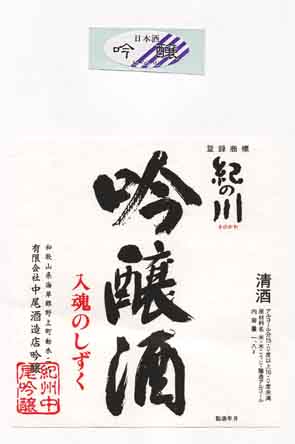 日本酒
吟醸
登録商標
紀の川
きのかわ
吟醸酒
清酒
アルコール分15.0度以上16.0度未満
原材料名 米・米こうじ・醸造アルコール
内容量 1.8ℓ
入魂のしずく
和歌山県海草郡野上町動木
有限会社中尾酒造店吟醸
紀州中
尾吟醸
製造年月